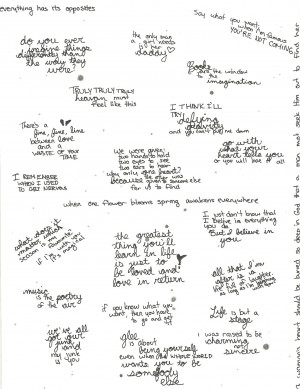 everything has its opposites
Say what you want,
when I'm famous
YOU'RE NOT COMING
do you ever
imagine things
differently than
the way they
were?
the only man
a girl needs
is her
daddy
Books
are the window
to the
imagination
TRULY TRULY TRULY
heaven must
feel like this
I THINK I'LL
TRY
defying
gravity
and you can't pull me down
There's a
fine, fine, line
between love
and a
WASTE OF YOUR
TIME
We were given:
two hands to hold
two eyes to see
two ears to hear
why only one heart?
because the other was
given to someone else
for us to find
go with
what your
heart tells you
or you will lose it all
I REMEMBER
WHEN I USED
TO GET NERVOUS
when one flower blooms spring awakens everywhere
the greatest
thing you'll
learn in life
is just to
be loved and
love in return
I just don't know that
I believe in everything
you do
But I believe in
you
music
is the poetry
of the air
if you know what you
want, then you have
to go and
get it
Life is but a
stage
we've all
got our
junk
and my
junk is
you
glee
is about
being yourself
even when the WHOLE WORLD
wants you to be
somebody
else
I was raised to be
charming
not
sincere
a woman's heart should be buried so deep in God that a man must seek Him out to find her